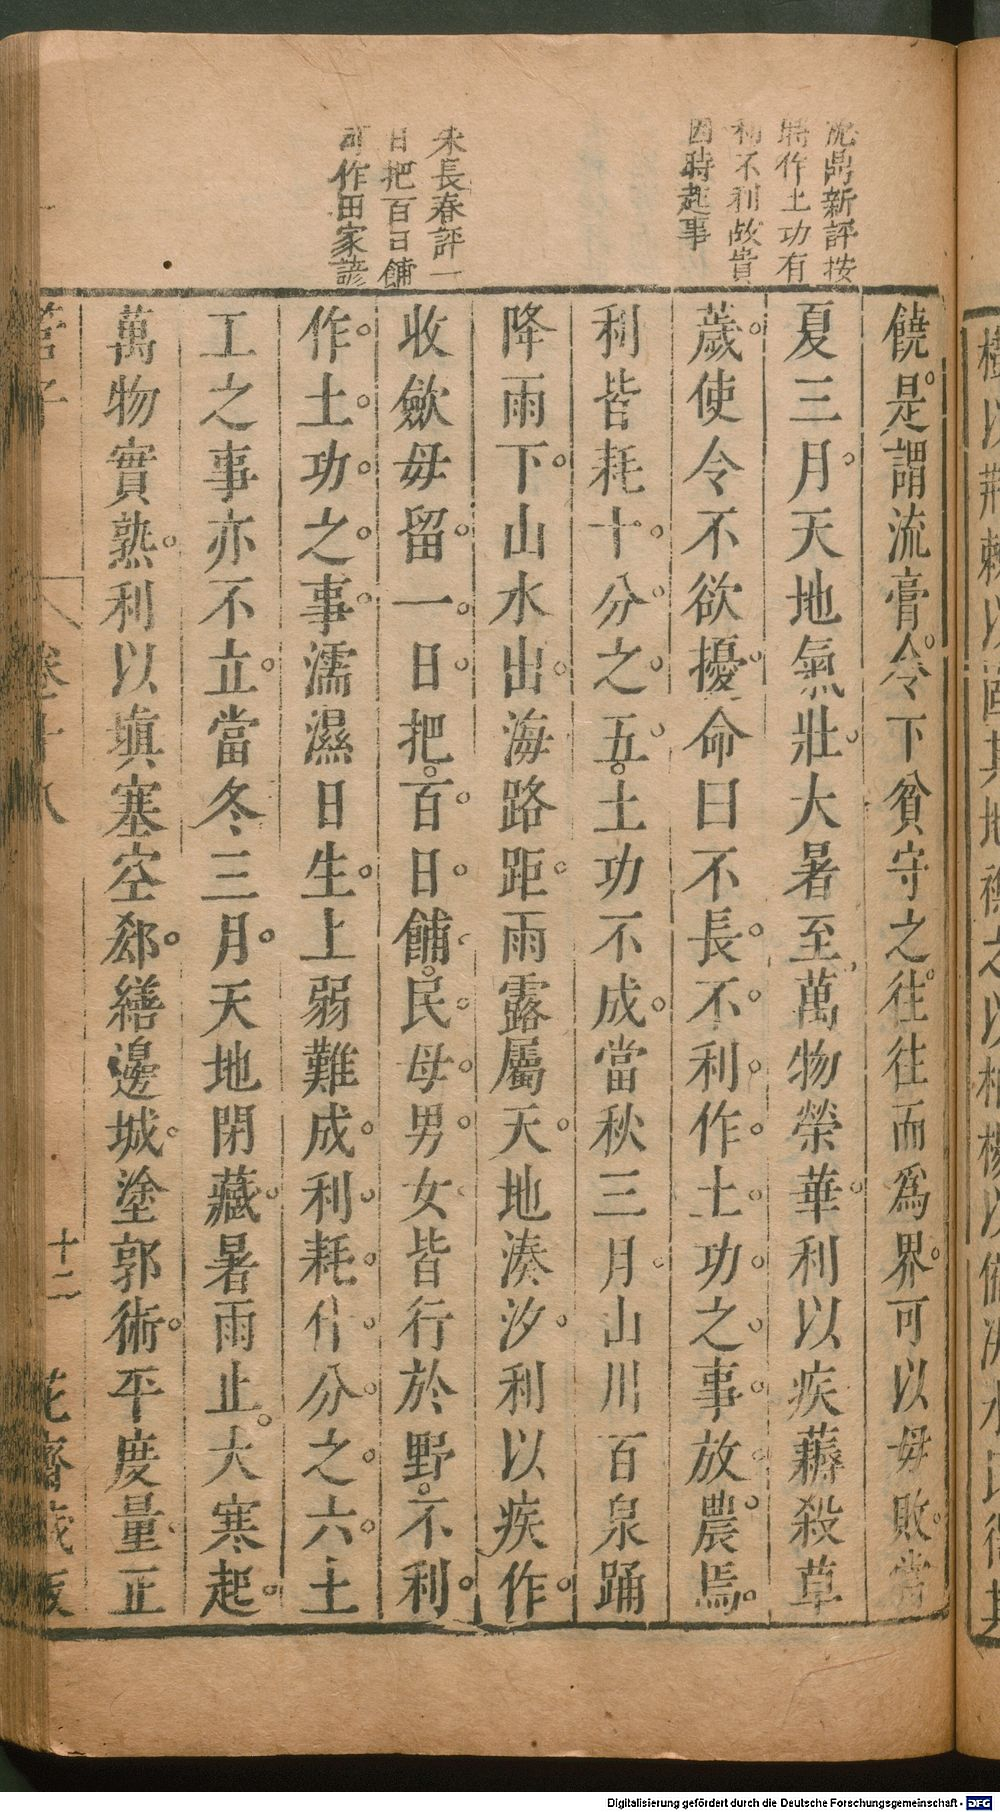 沈鼎新評按
時作土功有
利不利故貴
因時起事
朱長春評一
日把百日餔
可作田家諺
饒。是謂流膏。令下貧守之。往往而爲界。可以毋敗。當
夏三月。天地氣壯。大暑至。萬物榮華。利以疾薅殺草
薉。使令不欲擾。命曰不長。不利作土功之事。放農焉。
利皆耗十分之五。土功不成。當秋三月。山川百泉踊
降雨下。山水出。海路距。雨露屬天。地湊汐。利以疾作。
收斂毋留。一日把。百日餔。民毋男女。皆行於野。不利
作土功之事。濡濕日生。土弱難成。利耗什分之六。土
工之事亦不立。當冬三月。天地閉藏。暑雨止。大寒起。
萬物實熟。利以塡塞空郄。繕邊城。塗郭術。平度量。正
管子
卷十八
十二
花齋藏板
Digitalisierung gefördert durch die Deutsche Forschungsgemeinschaft - DFG